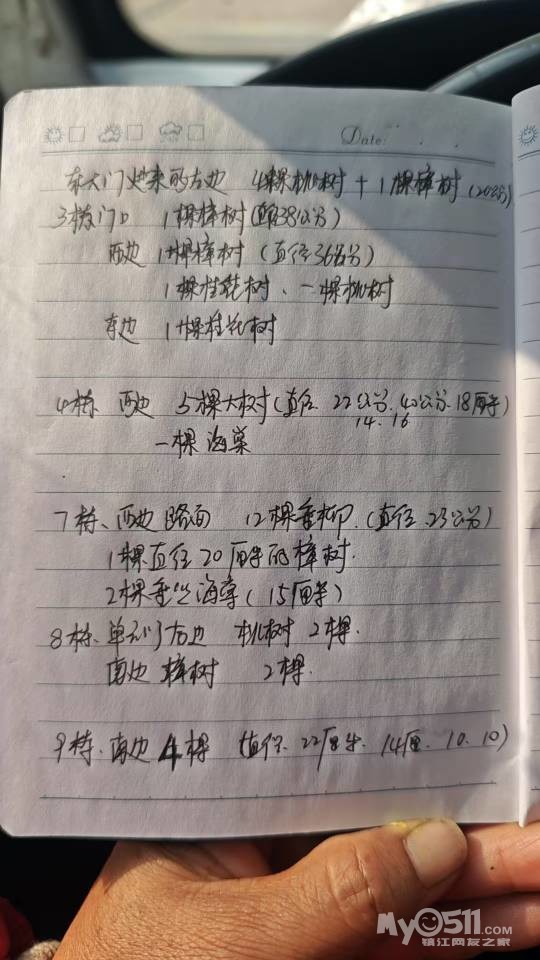 Date:
东大门进来的右边 4棵桃树 + 1棵樟树 (20公分)
3栋门口 1棵樟树 (直径38公分)
西边 1棵樟树 (直径36公分)
1棵桂花树、一棵桃树
东边 1棵桂花树
4栋、西边 5棵大树 (直径 22公分.40公分.18厘米)
14. 16
一棵海棠
7栋、西边路面 12棵垂柳. (直径.23公分)
1棵直径20厘米的樟树.
2棵垂丝海棠 (15厘米)
8栋、单元门右边 桃树 2棵.
南边 樟树 2棵.
9栋、南边 4棵 (直径. 22厘米. 14厘. 10. 10)
My0511.com
镇江网友之家